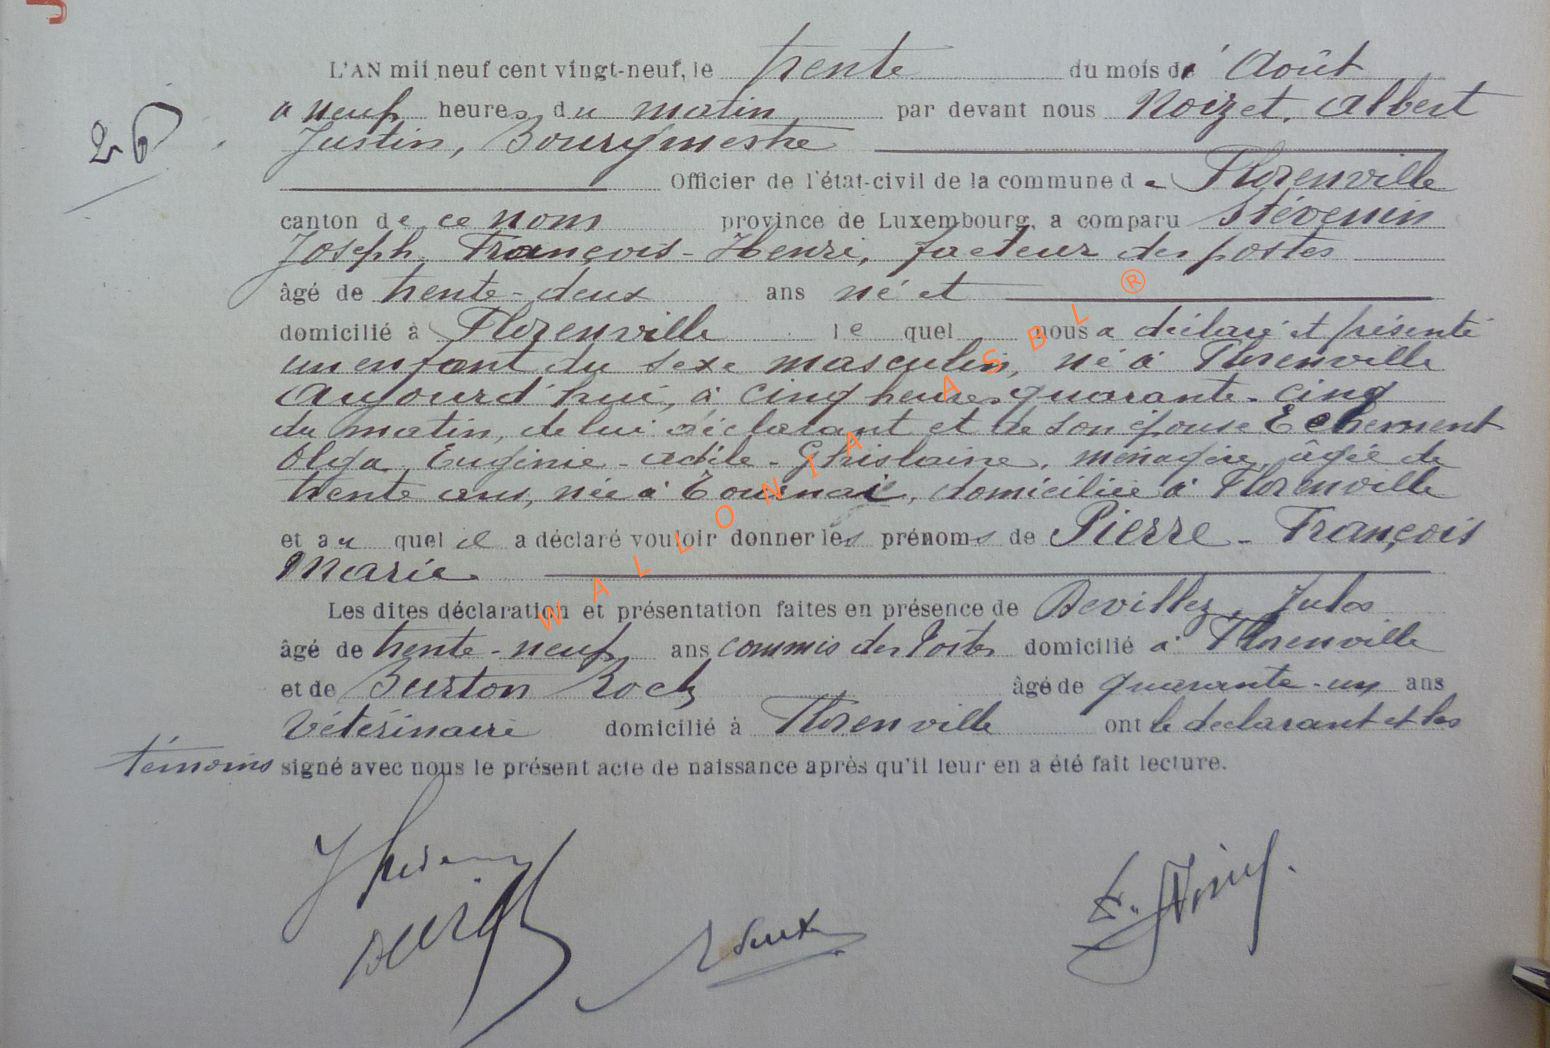 L'AN mil neuf cent vingt-neuf, le trente du mois de Août
26
a neuf heures du matin par devant nous Noizet, Albert
Justin, Bourgmestre
Officier de l'état-civil de la commune de Florenville
canton de ce nom province de Luxembourg, a comparu Stévenin
Joseph François-Henri, facteur des postes
âgé de trente-deux ans né et
domicilié à Florenville lequel nous a déclaré et présenté
un enfant du sexe masculin, né à Florenville
Aujourd'hui, à cinq heures quarante-cinq
du matin, de lui déclarant et de son épouse Echement
Olga, Eugénie-Adile-Ghislaine, ménagère, âgée de
trente ans, née à Tournai, domiciliée à Florenville
et au quel il a déclaré vouloir donner les prénoms de Pierre-François
Marie
Les dites déclaration et présentation faites en présence de Devillez, Jules
âgé de trente-neuf ans commis des Postes domicilié à Florenville
et de Burton Roch âgé de quarante-un ans
Vétérinaire domicilié à Florenville ont le déclarant et les
témoins signé avec nous le présent acte de naissance après qu'il leur en a été fait lecture.
WALLONIA ASBL ®